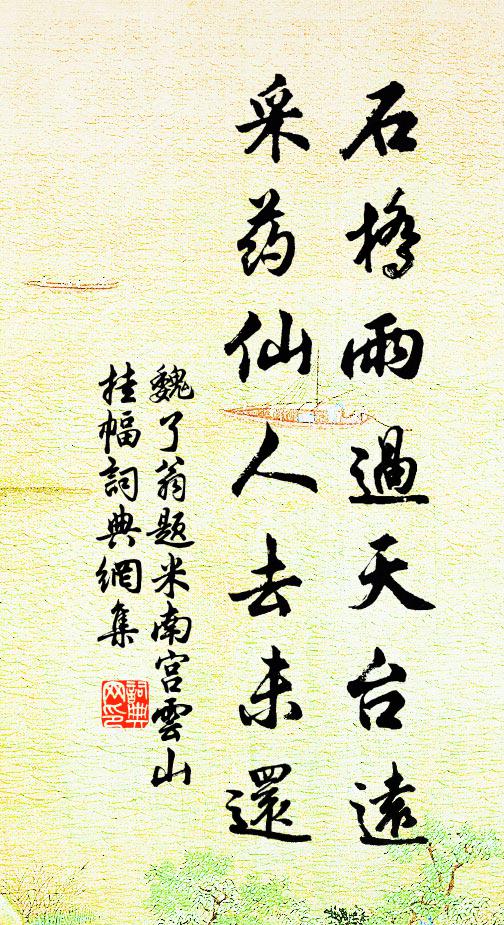 石橋雨過天台遠
采药仙人去未還
魏了翁題米南宮雲山
挂幅詞典網集
詞典网印